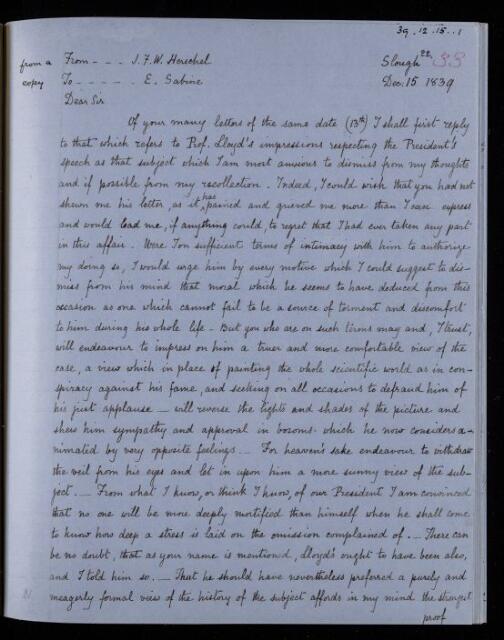 39.12.15..1
from a copy
From - - - J. F. W. Herschel
Slough 22. 33
To - - - - - E. Sabine
Dec: 15 1839
Dear Sir
Of your many letters of the same date (13th) I shall first reply
to that which refers to Prof. Lloyd's impressions respecting the President's
speech as that subject which I am most anxious to dismiss from my thoughts
and if possible from my recollection. Indeed, I could wish that you had not
shewn me his letter, as it has pained and grieved me more than I can express
and would lead me, if anything could, to regret that I had ever taken any part
in this affair. Were I on sufficient terms of intimacy with him to authorize
my doing so, I would urge him by every motive which I could suggest to dis-
miss from his mind that moral which he seems to have deduced from this
occasion as one which cannot fail to be a source of torment and discomfort
to him during his whole life - But you who are on such terms may and, I trust,
will endeavour to impress on him a truer and more comfortable view of the
case, a view which in place of painting the whole scientific world as in con-
spiracy against his fame, and seeking on all occasions to defraud him of
his just applause - will reverse the lights and shades of the picture and
shew him sympathy and approval in bosoms which he now considers a-
nimated by very opposite feelings - For heaven's sake endeavour to withdraw
the veil from his eyes and let in upon him a more sunny view of the sub-
ject. - From what I know, or think I know, of our President I am convinced
that no one will be more deeply mortified than himself when he shall come
to know how deep a stress is laid on the omission complained of. - There can
be no doubt, that as your name is mentioned, Lloyd's ought to have been also,
and I told him so. - That he should have nevertheless preferred a purely and
meagerly formal view of the history of the subject affords in my mind the strongest
proof